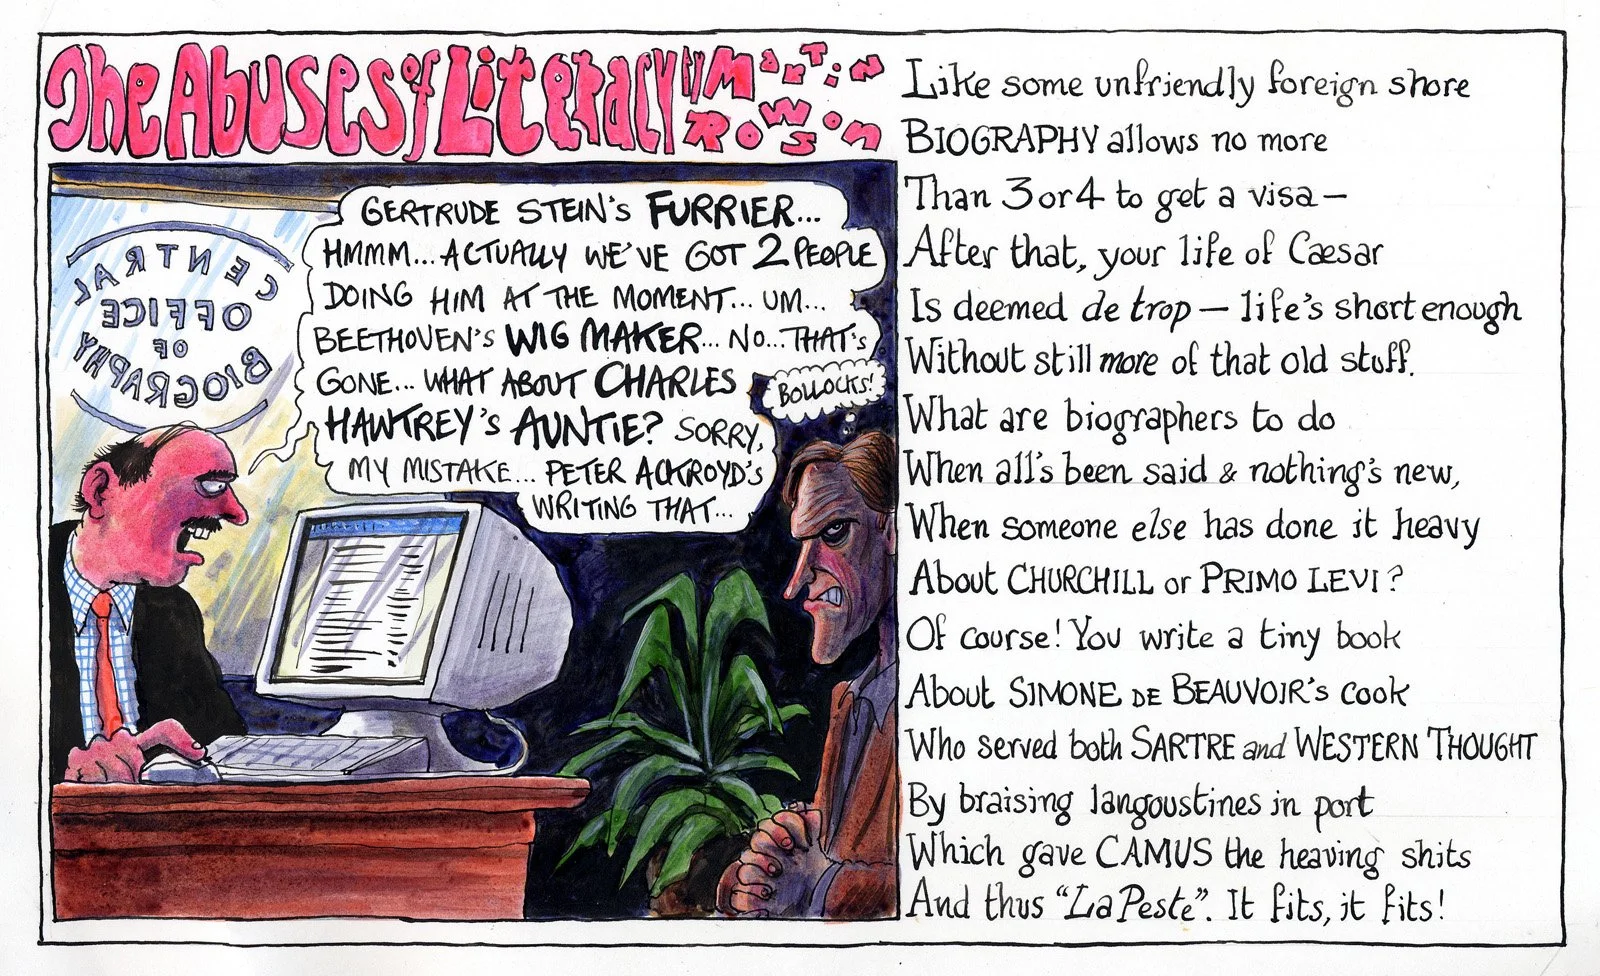 The Abuses of Literacy by Martin Rowson
CENTRAL
OFFICE
OF
BIOGRAPHY
GERTRUDE STEIN'S FURRIER...
HMMM... ACTUALLY WE'VE GOT 2 PEOPLE
DOING HIM AT THE MOMENT... UM...
BEETHOVEN'S WIG MAKER... NO... THAT'S
GONE... WHAT ABOUT CHARLES
HAWTREY'S AUNTIE? SORRY,
MY MISTAKE... PETER ACKROYD'S
WRITING THAT...
BOLLOCKS!
Like some unfriendly foreign shore
BIOGRAPHY allows no more
Than 3 or 4 to get a visa —
After that, your life of Cæsar
Is deemed de trop — life's short enough
Without still more of that old stuff.
What are biographers to do
When all's been said & nothing's new,
When someone else has done it heavy
About CHURCHILL or PRIMO LEVI?
Of course! You write a tiny book
About SIMONE DE BEAUVOIR's cook
Who served both SARTRE and WESTERN THOUGHT
By braising langoustines in port
Which gave CAMUS the heaving shits
And thus "La Peste". It fits, it fits!